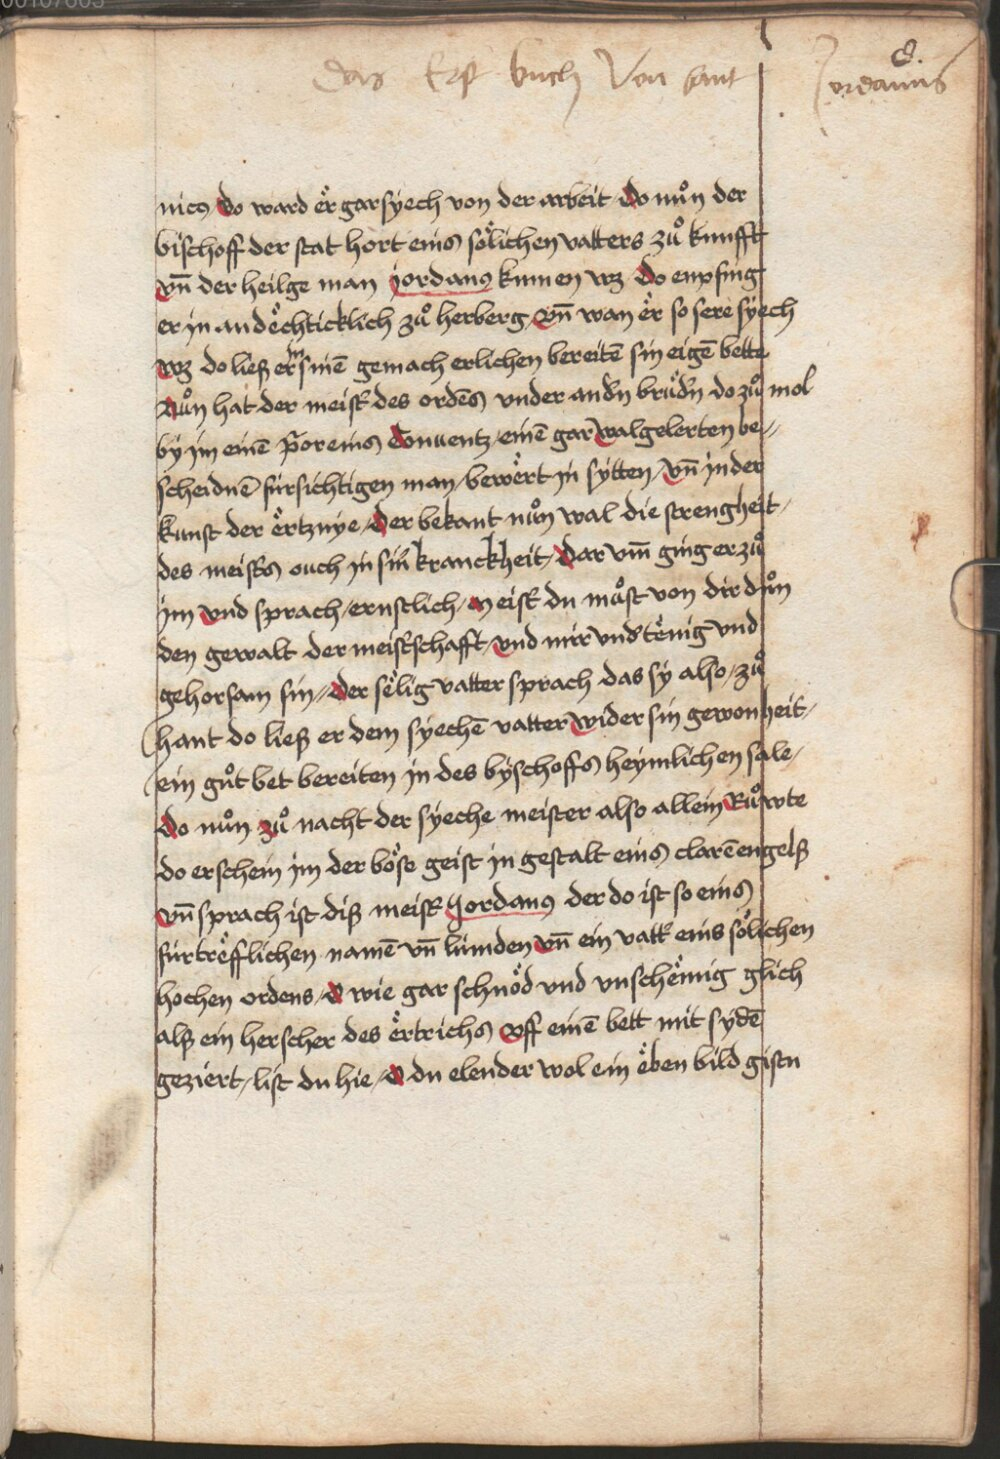 8.
Das Erst buch Von sant Jordanus
nico Do ward er̈ gar sÿech von der arbeit Do nuͦn der
bischoff der stat hort eins soͤlichen vatters zuͦ kunfft
vn̄ der heilge man jordanus kumen wz Do enpfing
er in andëchticklich zuͦ herberg / vn̄ wan ër so sere sÿech
wz do ließ er im sinē gemach erlichen bereitē sin eigē bette
Nuͦn hat der meist̄ des ordēs vnder and̄n bruͤd̄n do zuͦ mol
by im einē p̄or eins Conuentz / einē gar walgelerten be //
scheidnē fürsichtigen man / bewërt in sÿtten / vn̄ in der
kunst der ërtznÿe / Der bekant nuͦn wal die strengheit /
des meist̄s ouch in sin̄ kranckheit / Dar vm̄ ging er zuͦ
im vnd sprach / ernstlich / Meist̄ du muͦst von dir duͦn
den gewalt der meist̄schafft / vnd mir vnd̄tënig vnd
gehorsam sin // Der sëlig vatter sprach das sÿ also / zuͦ
hant do ließ er dem sÿechē vatter wider sin gewonheit /
ein guͦt bet bereiten in des bÿschoffs heÿmlichen sale /
Do nuͦn zuͦ nacht der sÿeche meister also allein Ruͦwte
do erschein im der boͤse geist in gestalt eins clarē engelß
vn̄ sprach ist diß meist̄ Jordanus der do ist so eins
fürtrëfflichen namē vn̄ lümden vn̄ ein vatt̄ eins soͤlichen
hochen ordens / O wie gar schnoͤd vnd vnschëmig glich
alß ein herscher des ërtrichs vff einē bett mit sÿdē
geziert / list du hie / O du elender wol ein ëben bild gistu